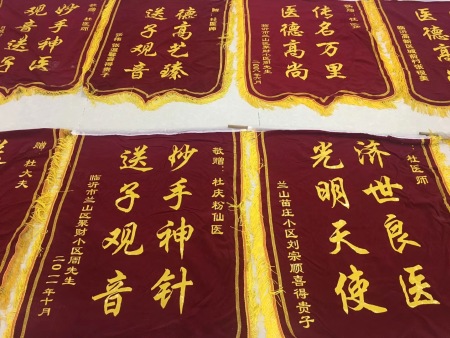 杜医师
妙手神医
观音送子
杜医师
德高艺臻
送子观音
传名万里
医德高尚
医德
赠 杜大夫
敬赠：杜庆粉仙医
妙手神针
送子观音
临沂市兰山区聚财小区周先生
二〇一一年十月
杜医师
济世良医
光明天使
兰山苗庄小区刘宗顺喜得贵子